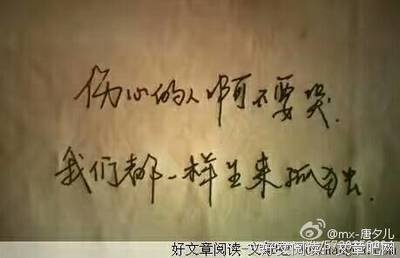 伤心的人啊不要哭.
我们都一样生来孤独.
@mx-唐夕儿
好文章阅读-文章吧